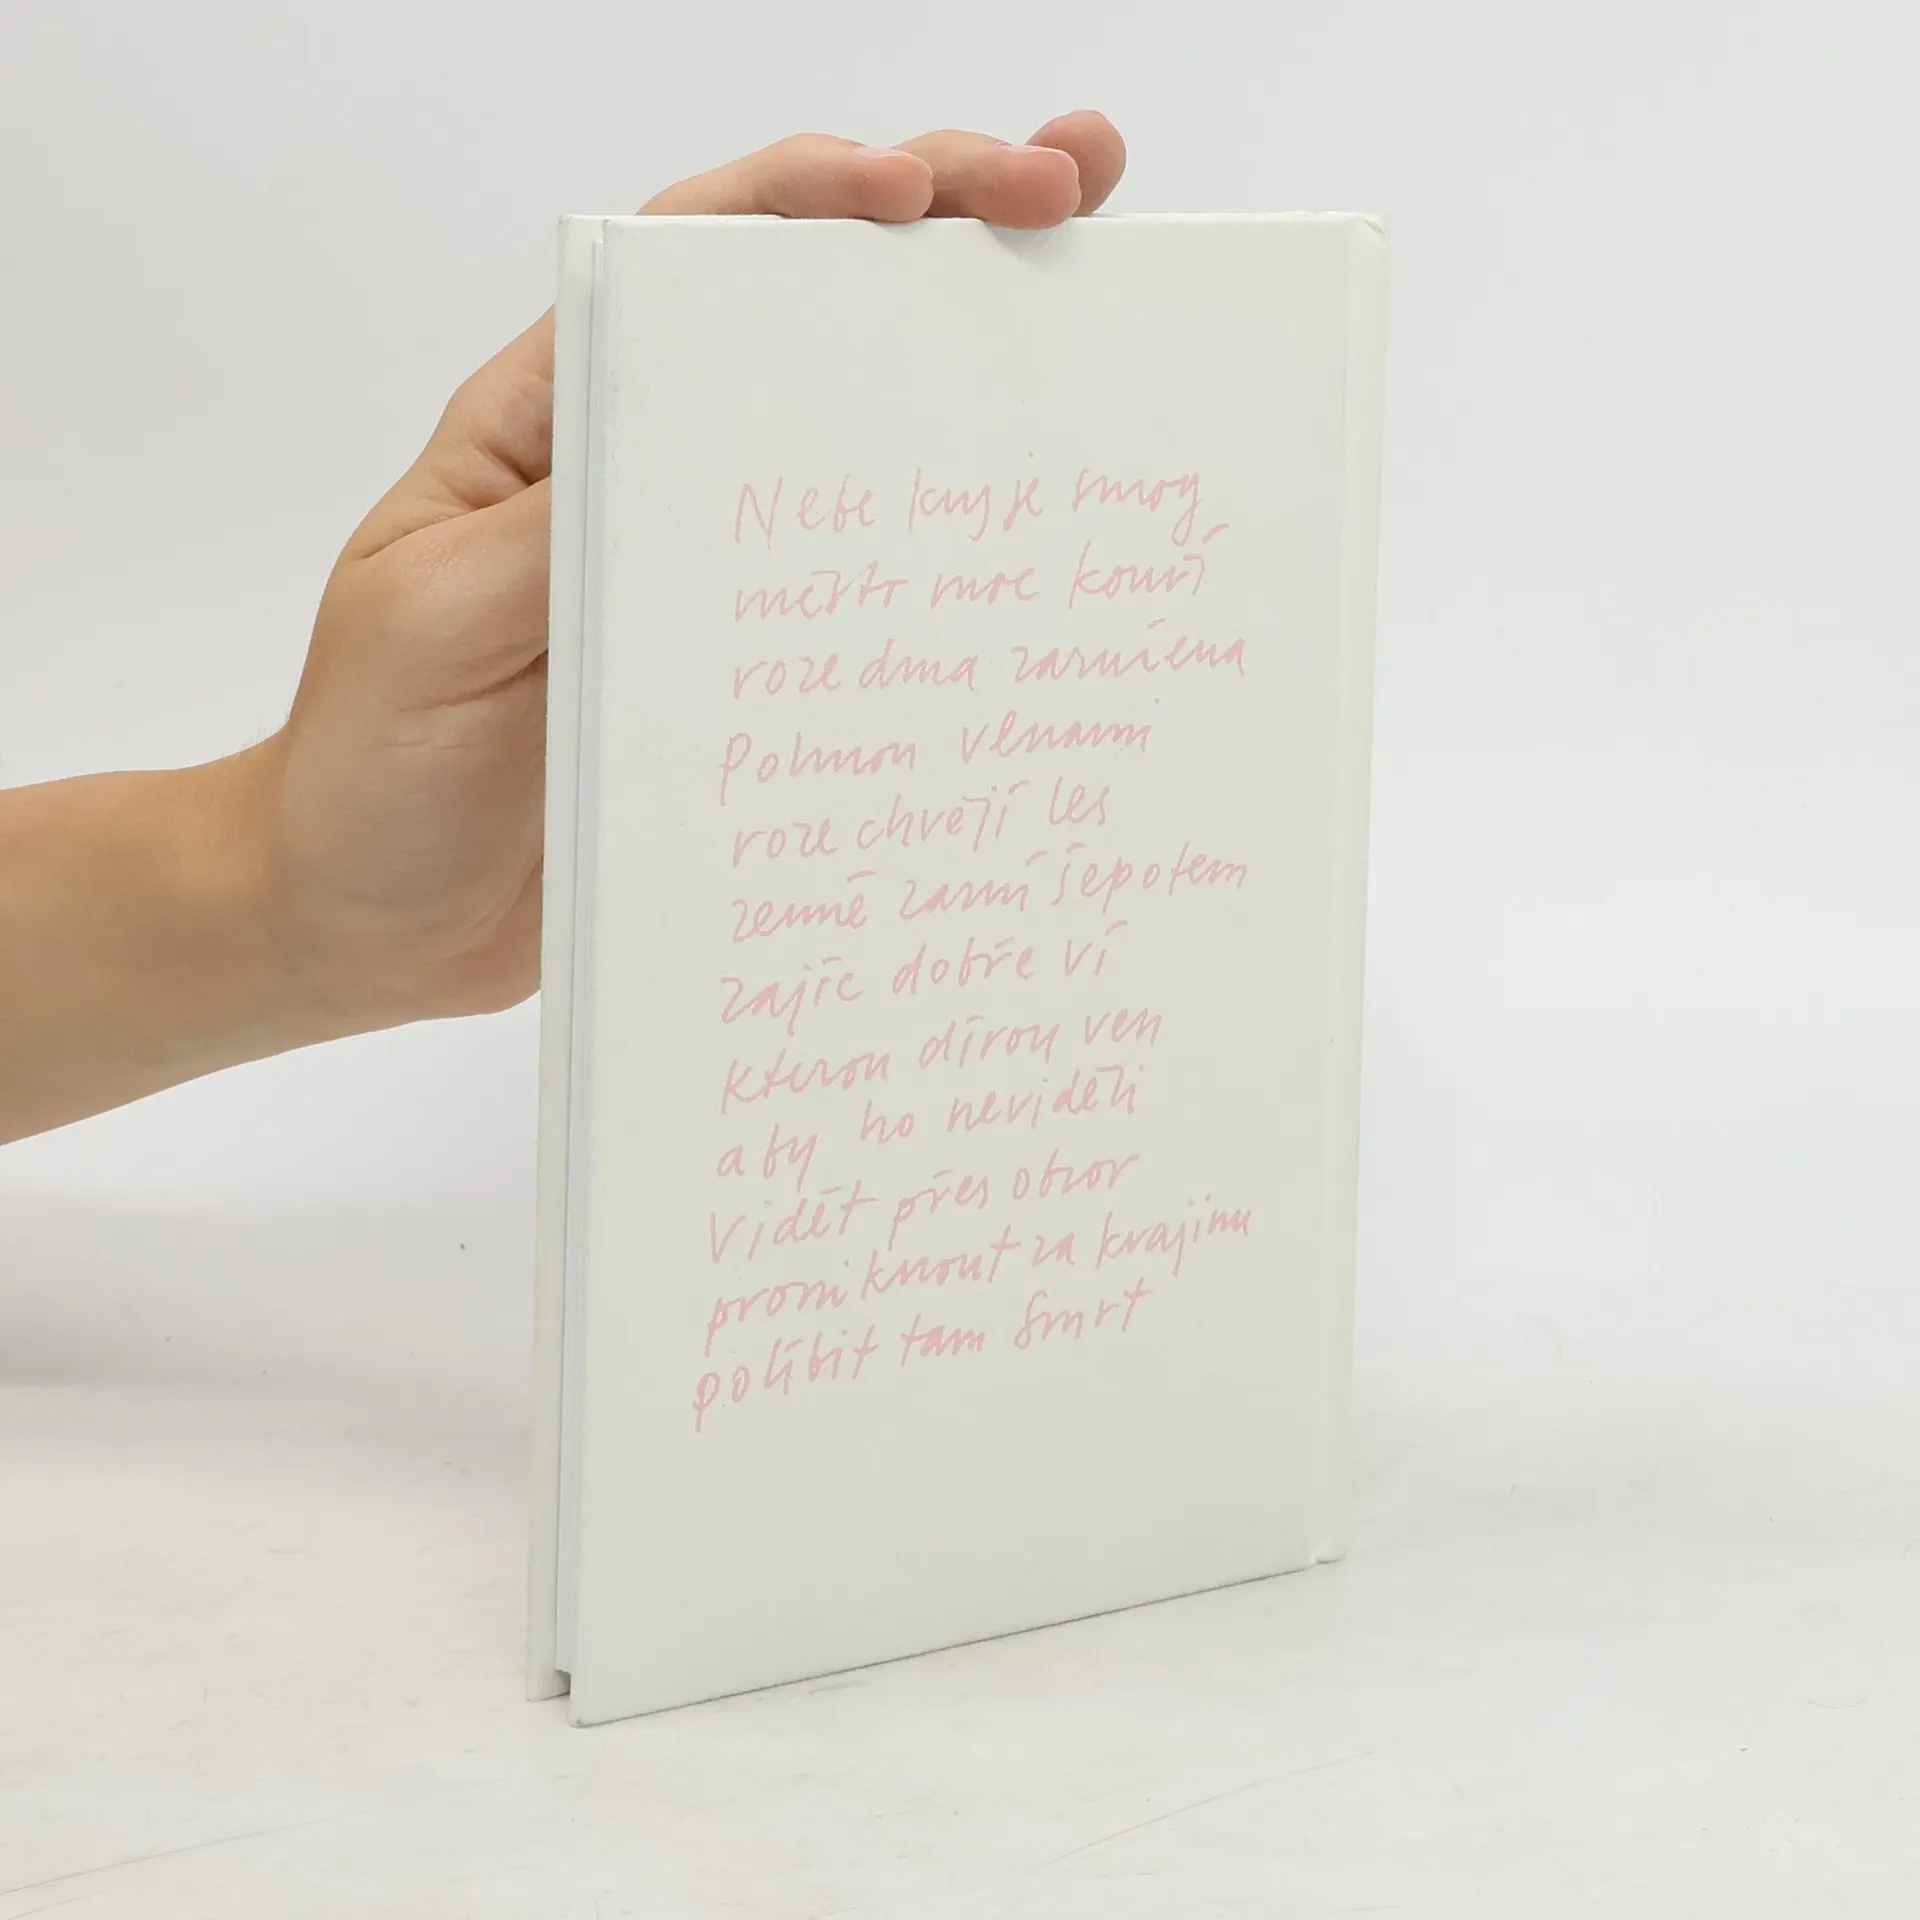 Nebe kryje smog
město moc kouří
roze dma zarmíena
Pohnou vlnami
roze chvějí les
země zarmí šepotem
zajíc dobře ví
kterou dírou ven
aby ho neviděli
Vidět přes obzor
proniknout za krajinu
políbit tam Smrt